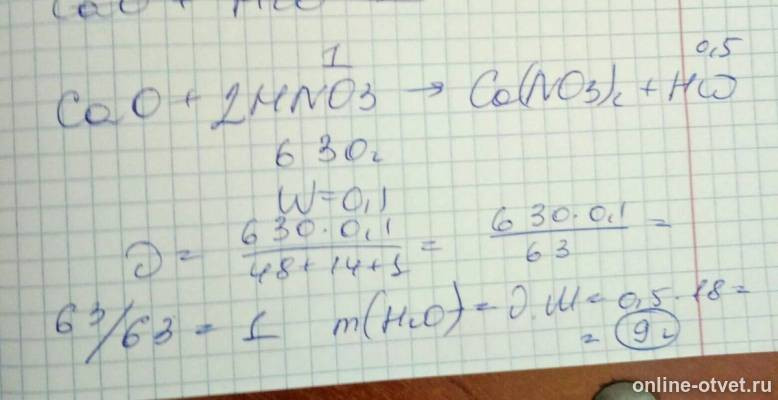 CaO + H
1 0,5
CaO + 2HNO3 → Ca(NO3)2 + H2O
630г
W=0,1
∂ = 630·0,1 / 48+14+1 = 630·0,1 / 63 =
63/63 = 1 m(H2O) = ∂·M = 0,5·18 =
= 9г
online-otvet.ru